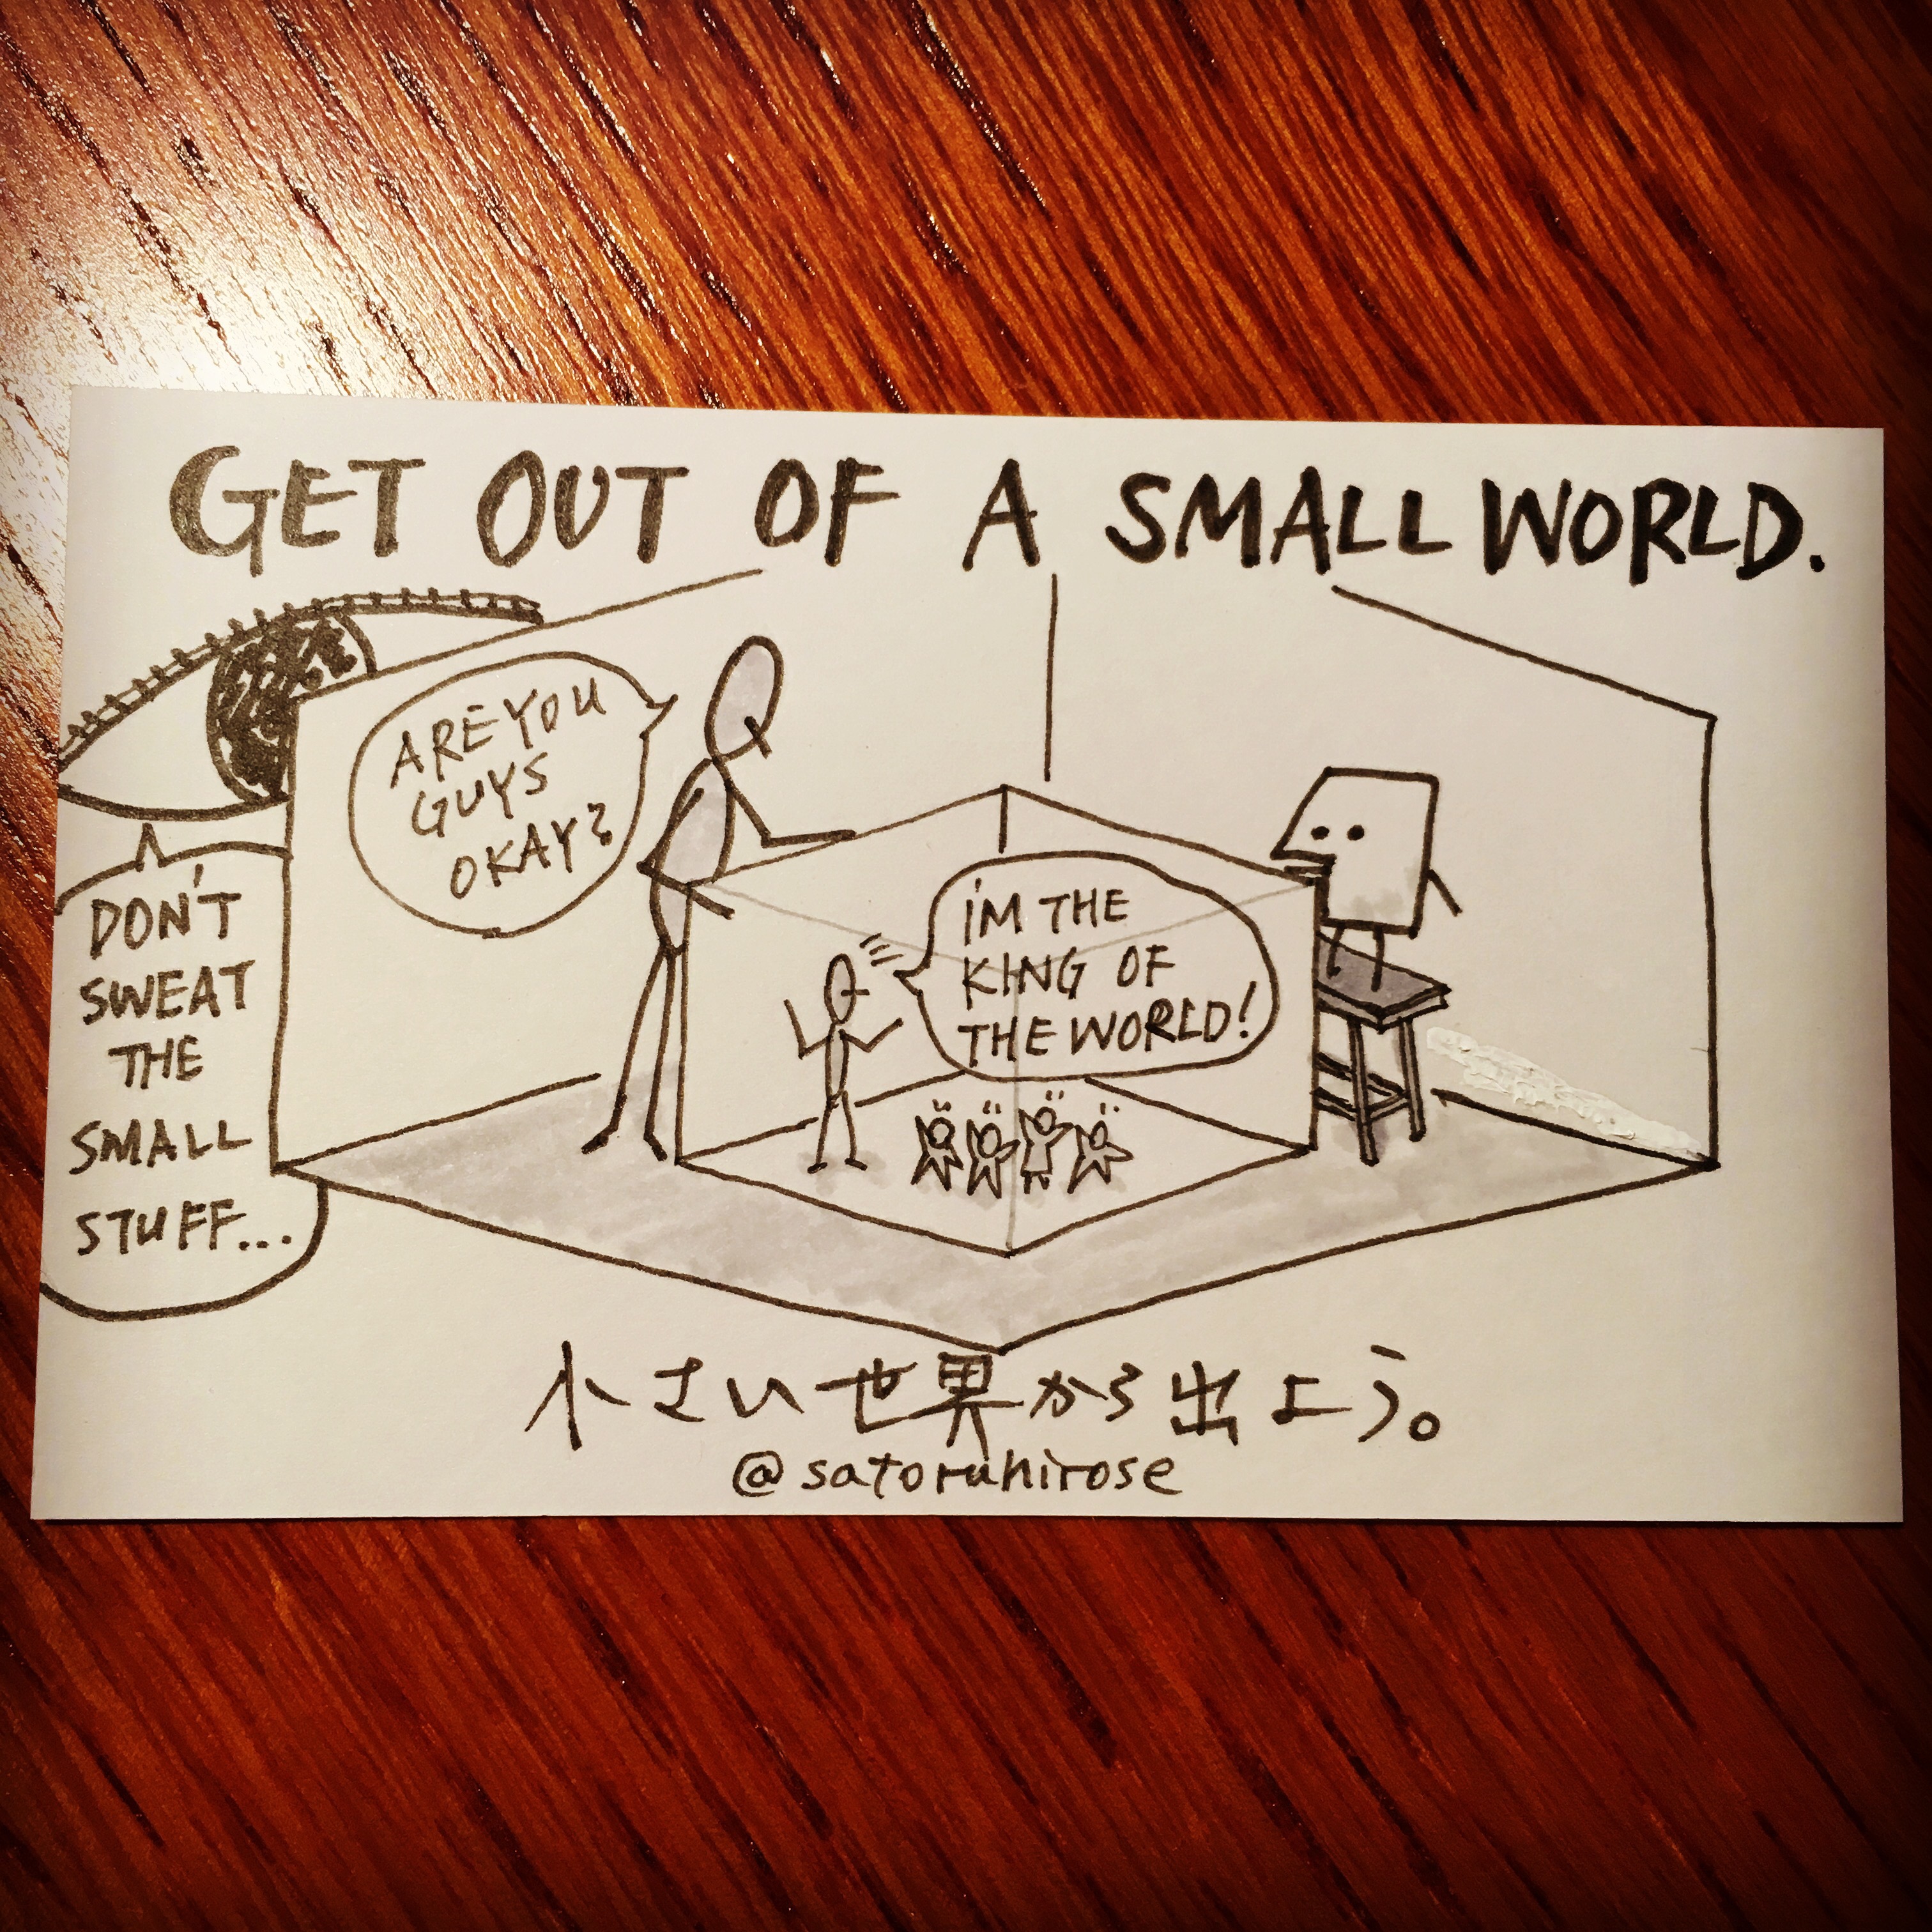 GET OUT OF A SMALL WORLD.
ARE YOU
GUYS
OKAY?
I'M THE
KING OF
THE WORLD!
DON'T
SWEAT
THE
SMALL
STUFF...
小さい世界から出よう。
@satoruhirose